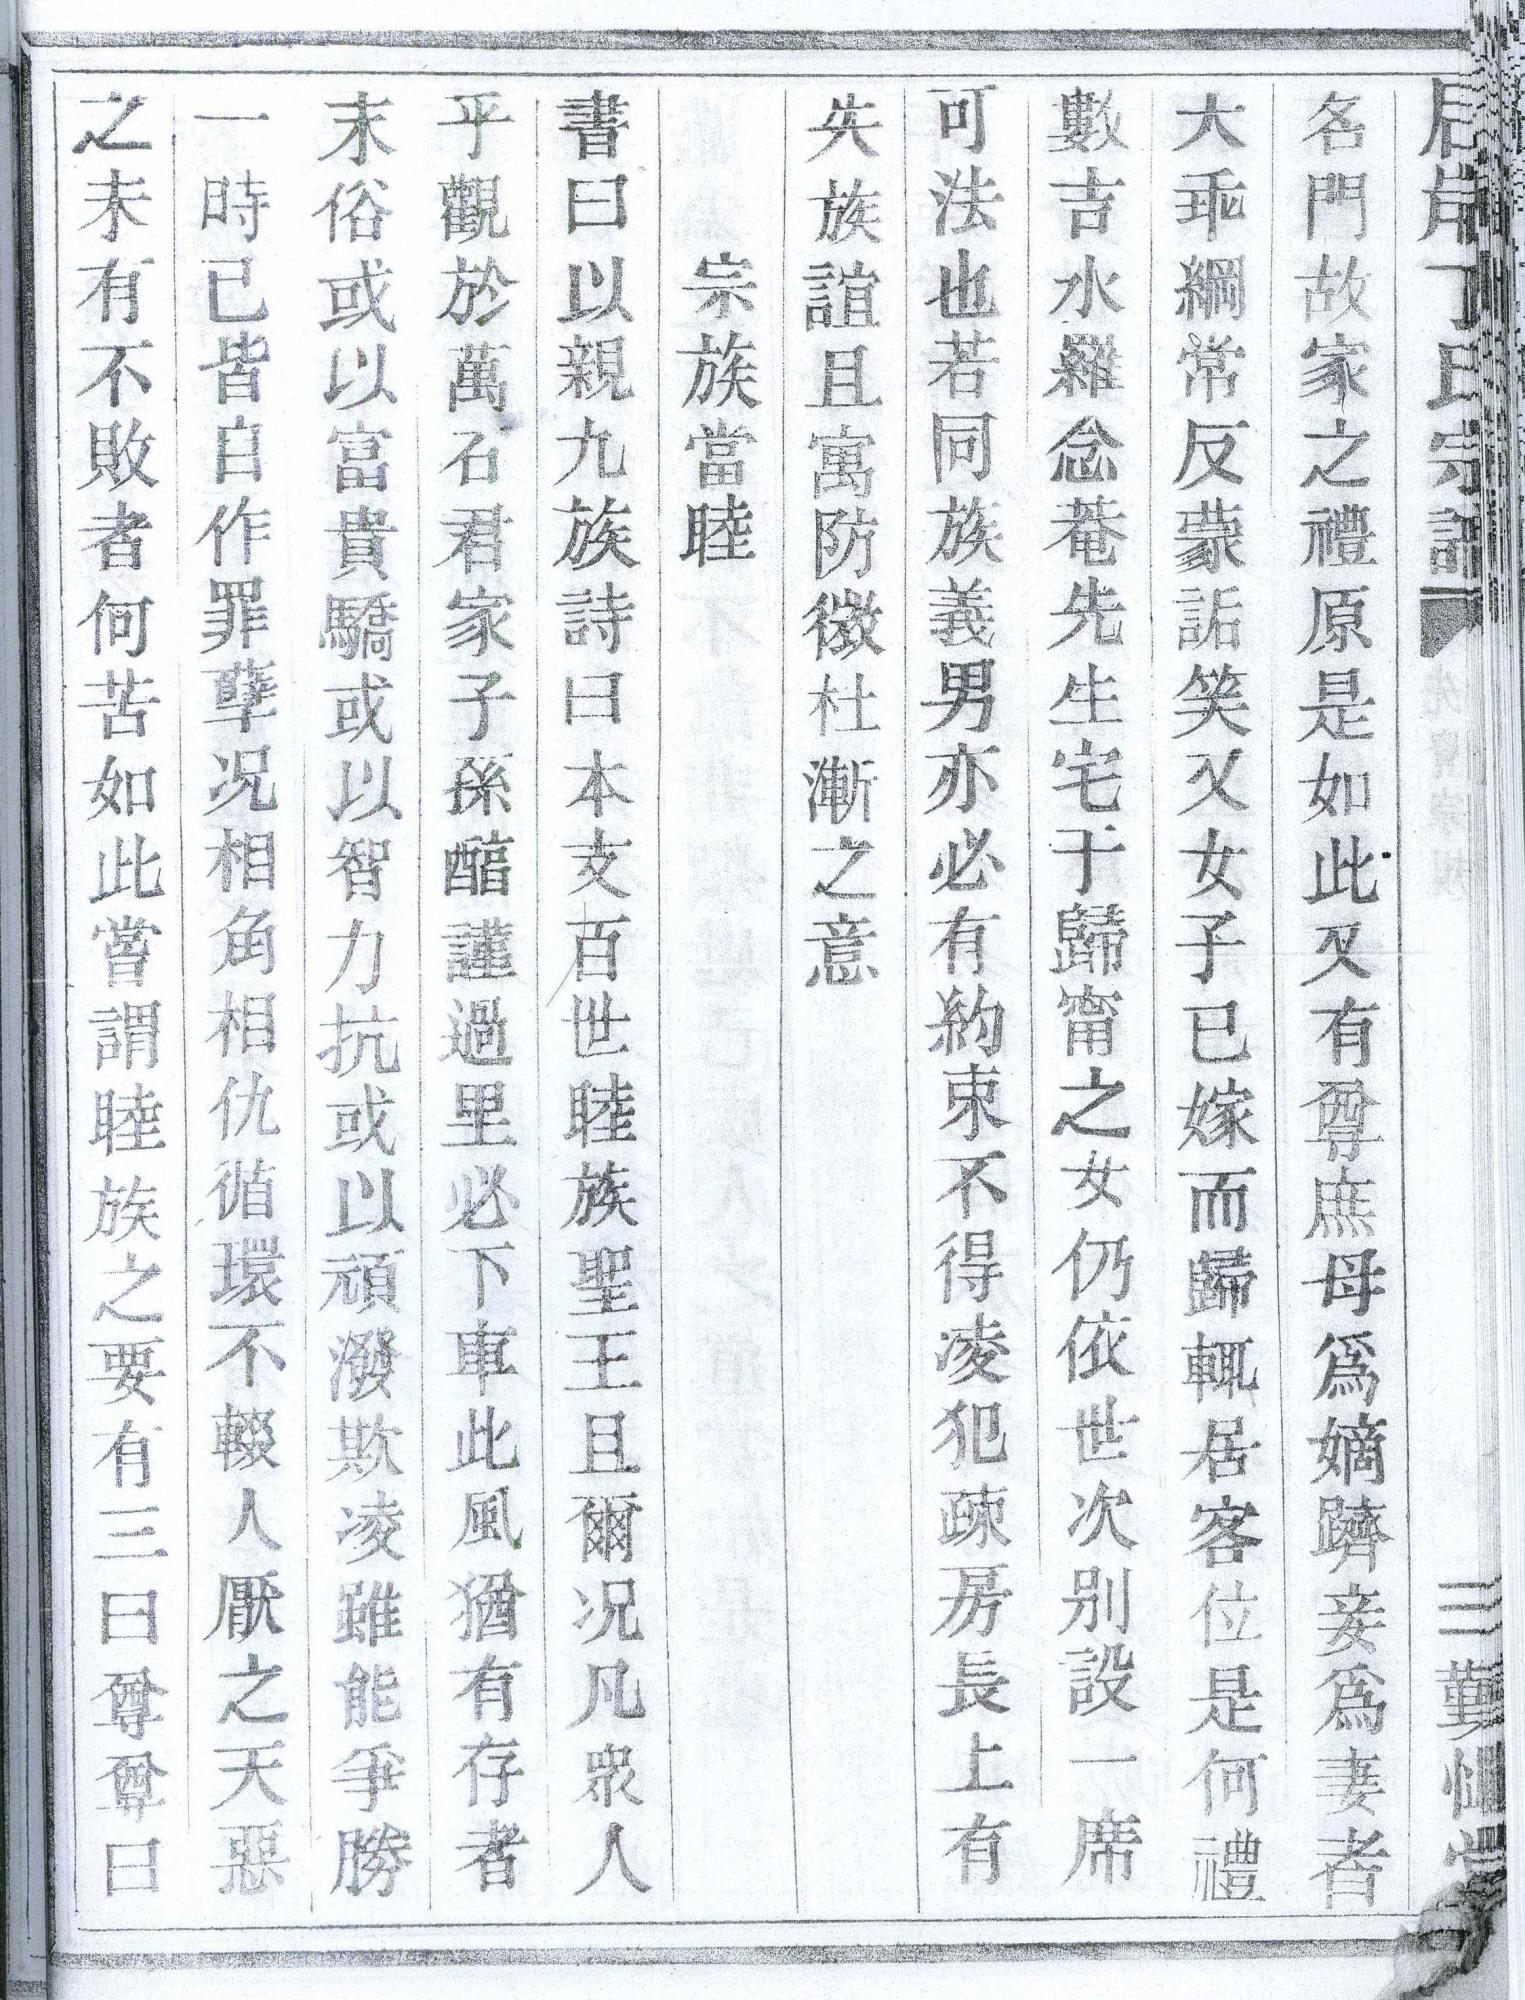 丁氏宗譜
三
名門故家之禮原是如此又有尊庶母爲嫡躋妾爲妻者
大乖綱常反蒙詬笑又女子已嫁而歸輒居客位是何禮
數吉水羅念菴先生宅于歸甯之女仍依世次別設一席
可法也若同族義男亦必有約束不得凌犯疎房長上有
失族誼且寓防微杜漸之意
宗族當睦
書曰以親九族詩曰本支百世睦族聖王且爾况凡衆人
乎觀於萬石君家子孫醕謹過里必下車此風猶有存者
末俗或以富貴驕或以智力抗或以頑潑欺凌雖能爭勝
一時已皆自作罪孽况相角相仇循環不輟人厭之天惡
之未有不敗者何苦如此嘗謂睦族之要有三曰尊尊曰